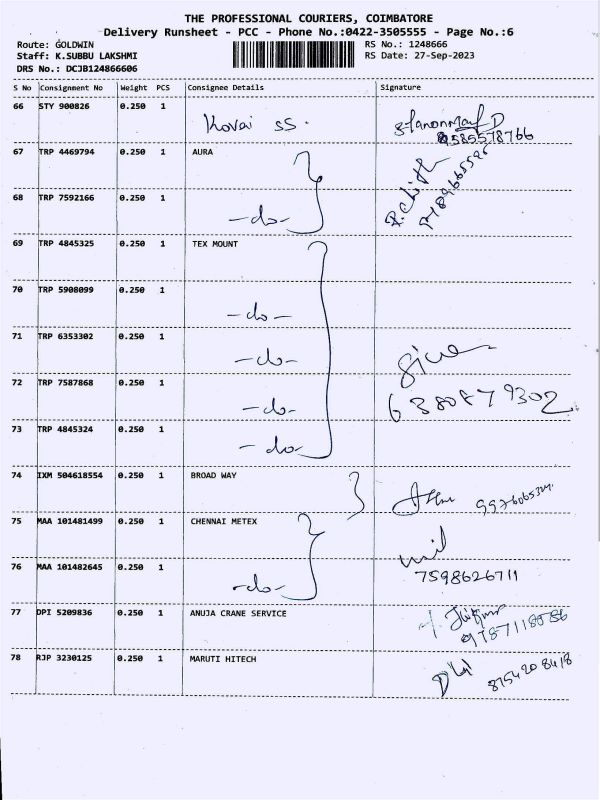 THE PROFESSIONAL COURIERS, COIMBATORE
Delivery Runsheet - PCC - Phone No.:0422-3505555 - Page No.:6
Route: GOLDWIN RS No.: 1248666
Staff: K.SUBBU LAKSHMI RS Date: 27-Sep-2023
DRS No.: DCJB124866606
S No Consignment No Weight PCS Consignee Details Signature
66 STY 900826 0.250 1 Kovai SS.
9585578766
67 TRP 4469794 0.250 1 AURA
68 TRP 7592166 0.250 1 -do-
69 TRP 4845325 0.250 1 TEX MOUNT
70 TRP 5908099 0.250 1 -do-
71 TRP 6353302 0.250 1 -do-
72 TRP 7587868 0.250 1 -do- 6380879302
73 TRP 4845324 0.250 1 -do-
74 IXM 504618554 0.250 1 BROAD WAY
75 MAA 101481499 0.250 1 CHENNAI METEX
76 MAA 101482645 0.250 1 -do- 7598626711
77 DPI 5209836 0.250 1 ANUJA CRANE SERVICE
78 RJP 3230125 0.250 1 MARUTI HITECH 8754208418